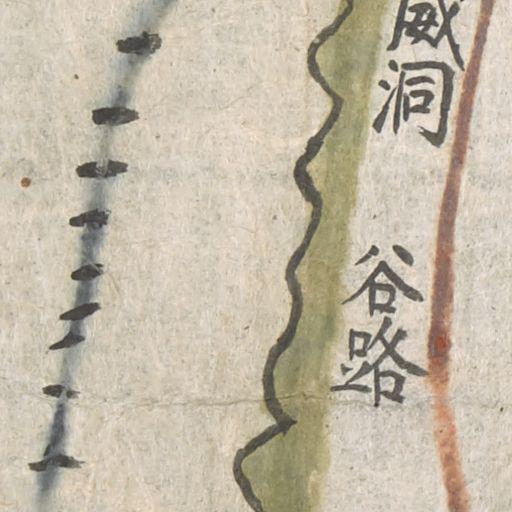 威洞
谷路